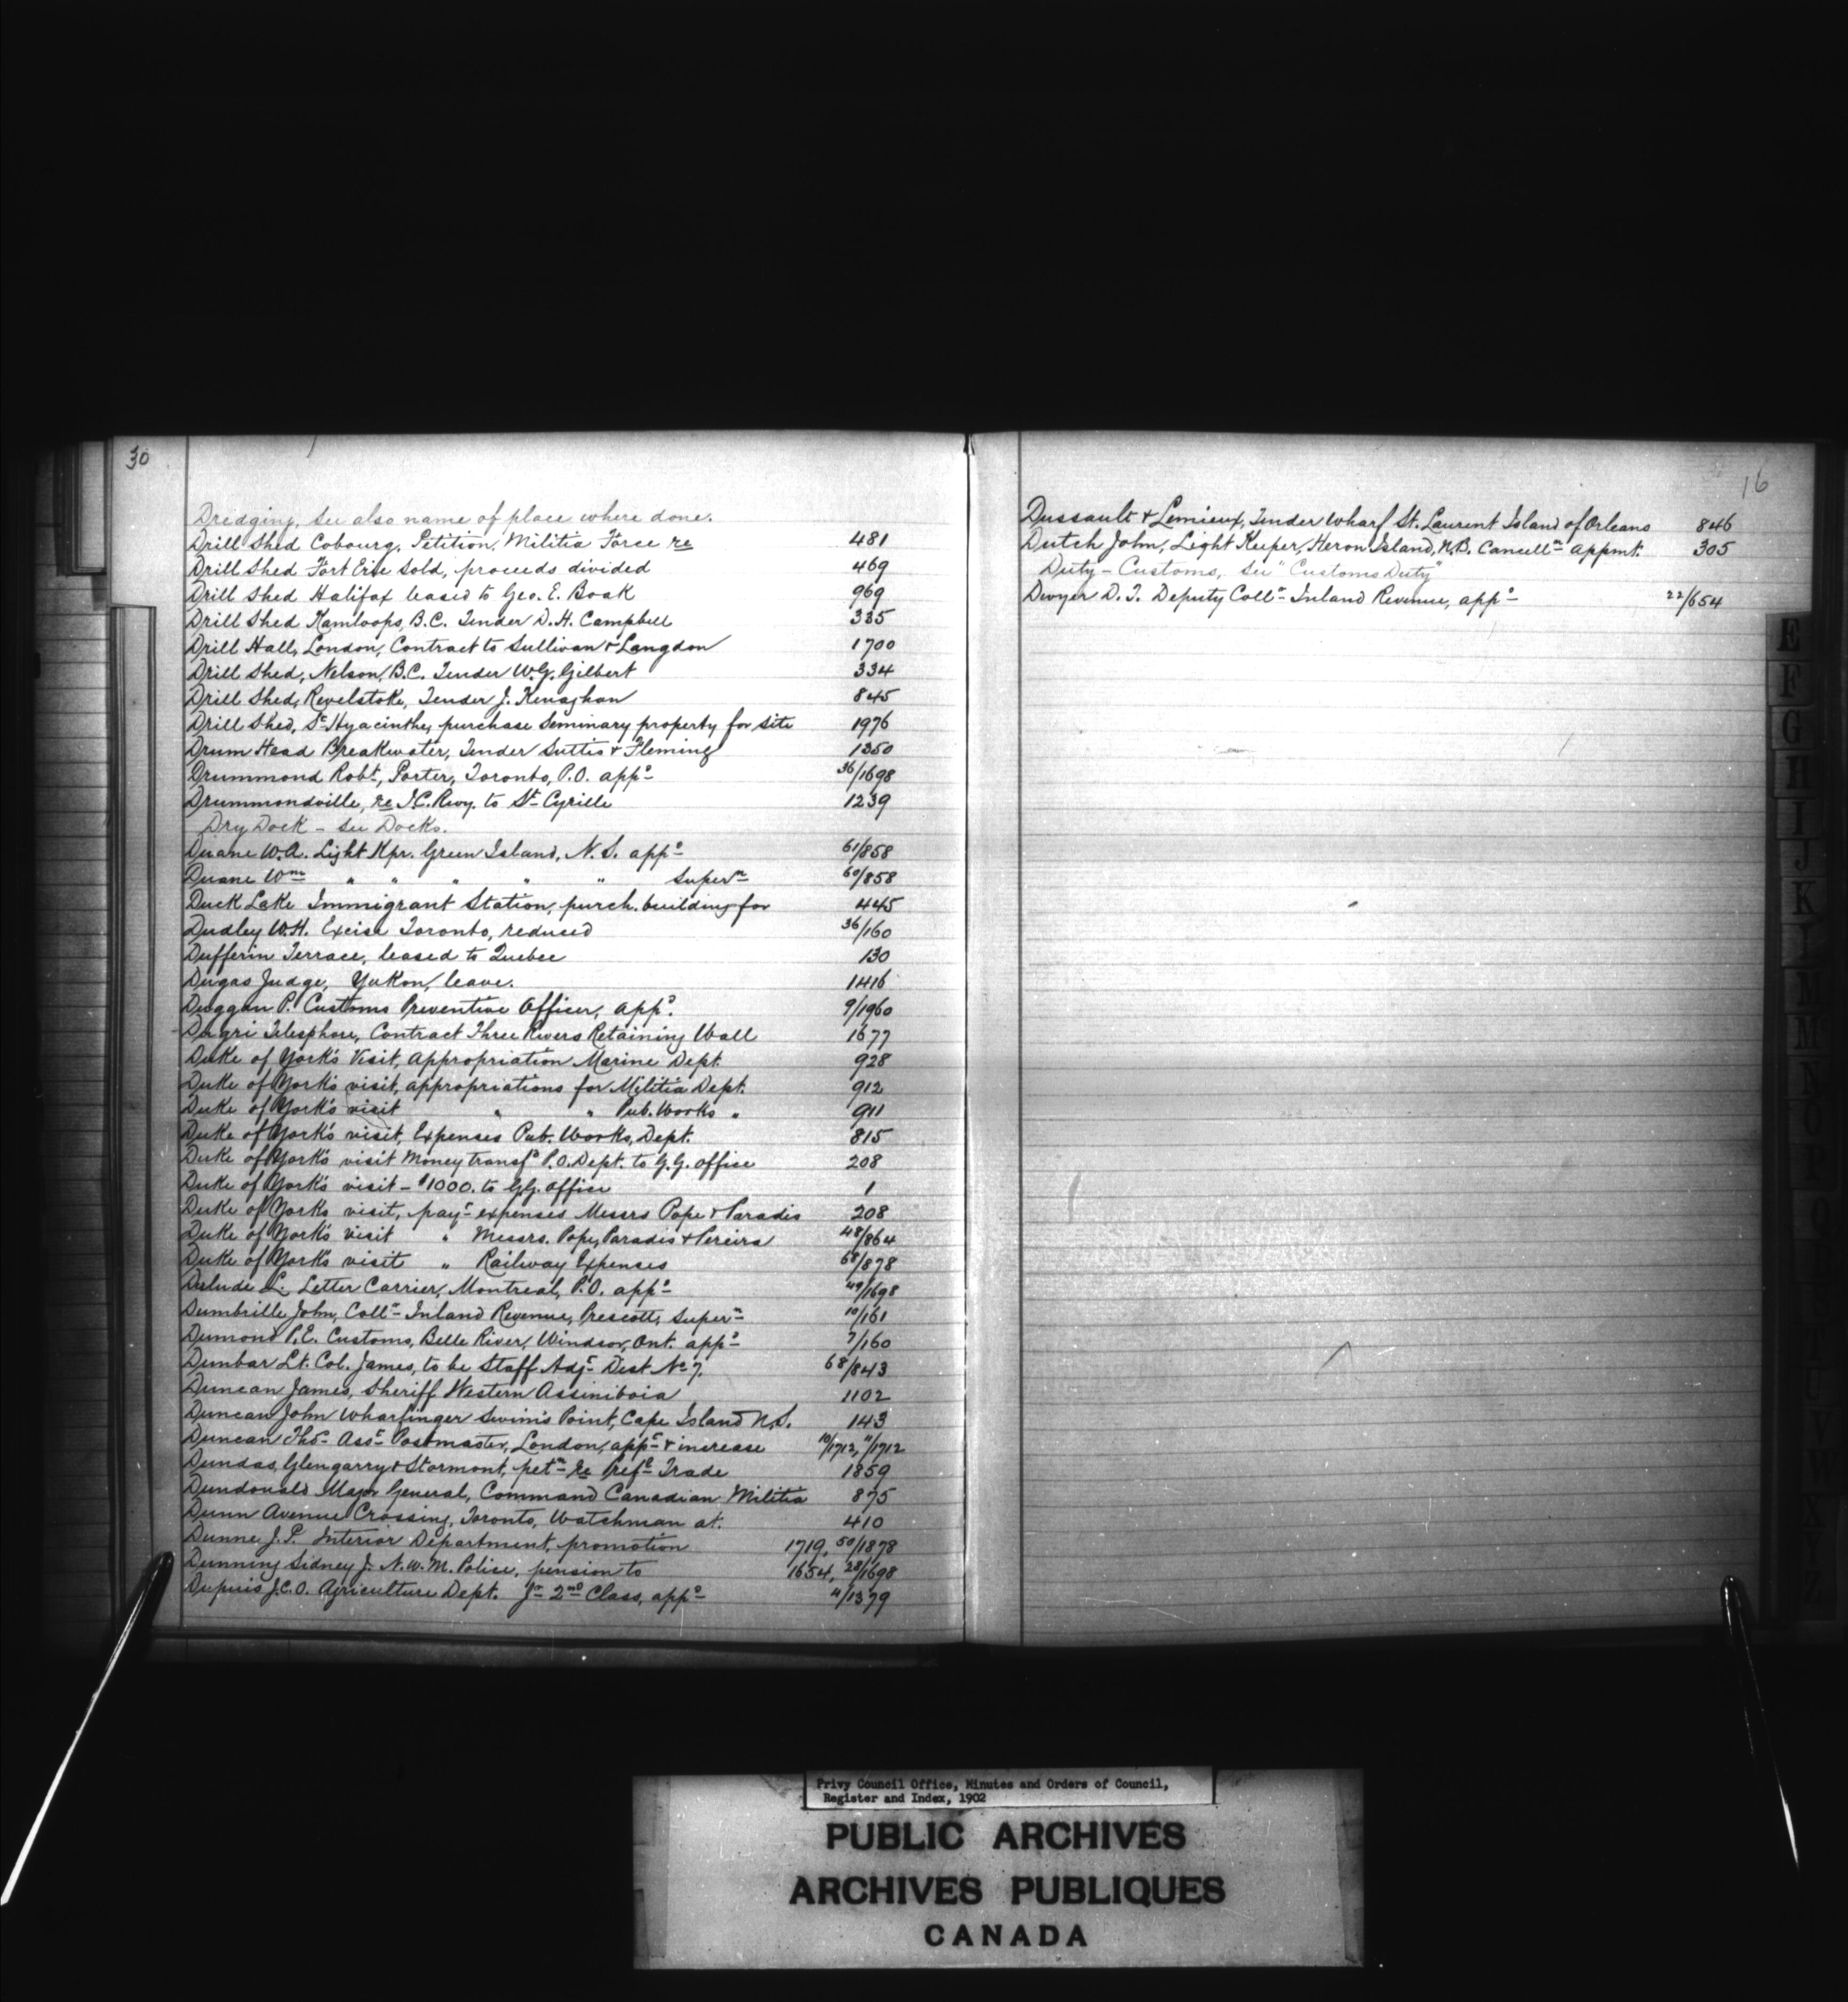 30
Dredging, See also name of place where done.
Drill Shed Cobourg, Petition, Militia Force re 481
Drill Shed Fort Erie Sold, proceeds divided 469
Drill Shed Halifax leased to Geo. E. Boak 969
Drill Shed Kamloops, B.C. Tender D.H. Campbell 335
Drill Hall, London, Contract to Sullivan & Langdon 1700
Drill Shed, Nelson, B.C. Tender W.G. Gilbert 334
Drill Shed, Revelstoke, Tender J. Kenaghan 845
Drill Shed, St Hyacinthe, purchase Seminary property for site 1976
Drum Head Breakwater, Tender Suttis & Fleming 1350
Drummond Robt, Porter, Toronto, P.O. appt 36/1698
Drummondville, re I.C. Rwy. to St Cyrille 1239
Dry Dock - See Docks.
Duane W.A. Light Kpr. Green Island, N.S. appt 61/858
Duane Wm " " " " " Supern 60/858
Duck Lake Immigrant Station, purch. building for 445
Dudley W.H. Excise Toronto, reduced 36/160
Dufferin Terrace, leased to Quebec 130
Dugas Judge, Yukon, leave. 1416
Duggan P. Customs Preventive Officer, appt. 9/1960
Dugri Telesphore, Contract Three Rivers Retaining Wall 1677
Duke of York's Visit, Appropriation Marine Dept. 928
Duke of York's visit, appropriations for Militia Dept. 912
Duke of York's visit " " Pub. Works " 911
Duke of York's visit, Expenses Pub. Works, Dept. 815
Duke of York's visit Money transfd P.O. Dept. to G.G. office 208
Duke of York's visit - $1000. to G.G. office 1
Duke of York's visit, payt expenses Messrs Pope & Paradis 208
Duke of York's visit " Messrs. Pope, Paradis & Pereira 48/864
Duke of York's visit " Railway Expenses 68/878
Dulude L. Letter Carrier, Montreal, P.O. appt 49/1698
Dumbrille John, Collr Inland Revenue, Prescott, Supern 10/161
Dumond P.E. Customs, Belle River, Windsor, Ont. appt 7/160
Dunbar Lt. Col. James, to be Staff Adjt Dist No 7. 68/843
Duncan James, Sheriff Western Assiniboia 1102
Duncan John Wharfinger Swim's Point, Cape Island N.S. 143
Duncan Thos Asst Postmaster, London, appt & increase 10/1712, 11/1712
Dundas, Glengarry & Stormont, petn re Prefl Trade 1859
Dundonald Major General, Command Canadian Militia 875
Dunn Avenue Crossing, Toronto, Watchman at. 410
Dunne J.P. Interior Department, promotion 1719, 50/1878
Dunning Sidney J. N.W.M. Police, pension to 1654, 28/1698
Dupuis J.C.O. Agriculture Dept. Jr 2nd Class, appt 4/1379
16
Dussault & Lemieux, Tender Wharf St. Laurent Island of Orleans 846
Dutch John, Light Keeper, Heron Island, N.B. Cancelln appmt. 305
Duty - Customs, See "Customs Duty"
Dwyer D.T. Deputy Collr Inland Revenue, appt 22/654
E
F
G
H
I
J
K
Privy Council Office, Minutes and Orders of Council,
Register and Index, 1902
PUBLIC ARCHIVES
ARCHIVES PUBLIQUES
CANADA